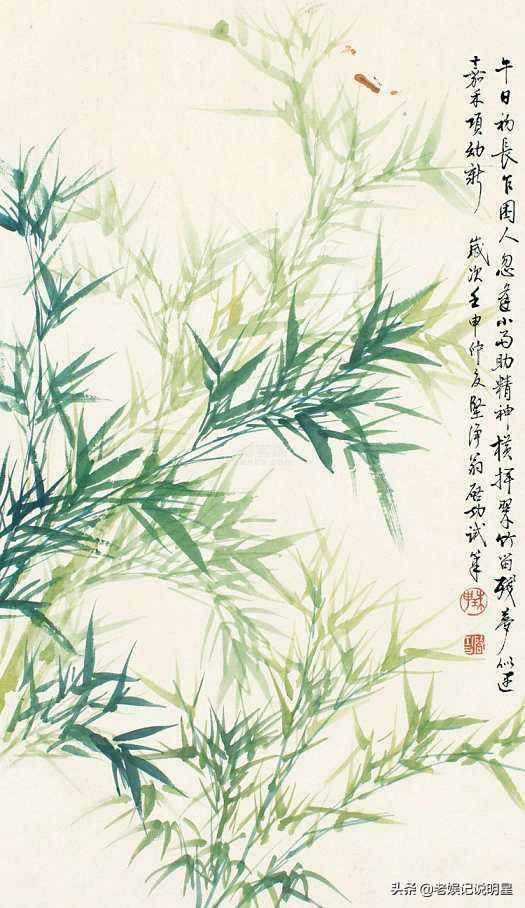 午日初長乍困人忽逢小雨助精神橫揮翠竹留殘夢似
嘉禾項幼新 歲次壬申仲夏堅淨翁啟功試筆
头条 @老娱记说明星